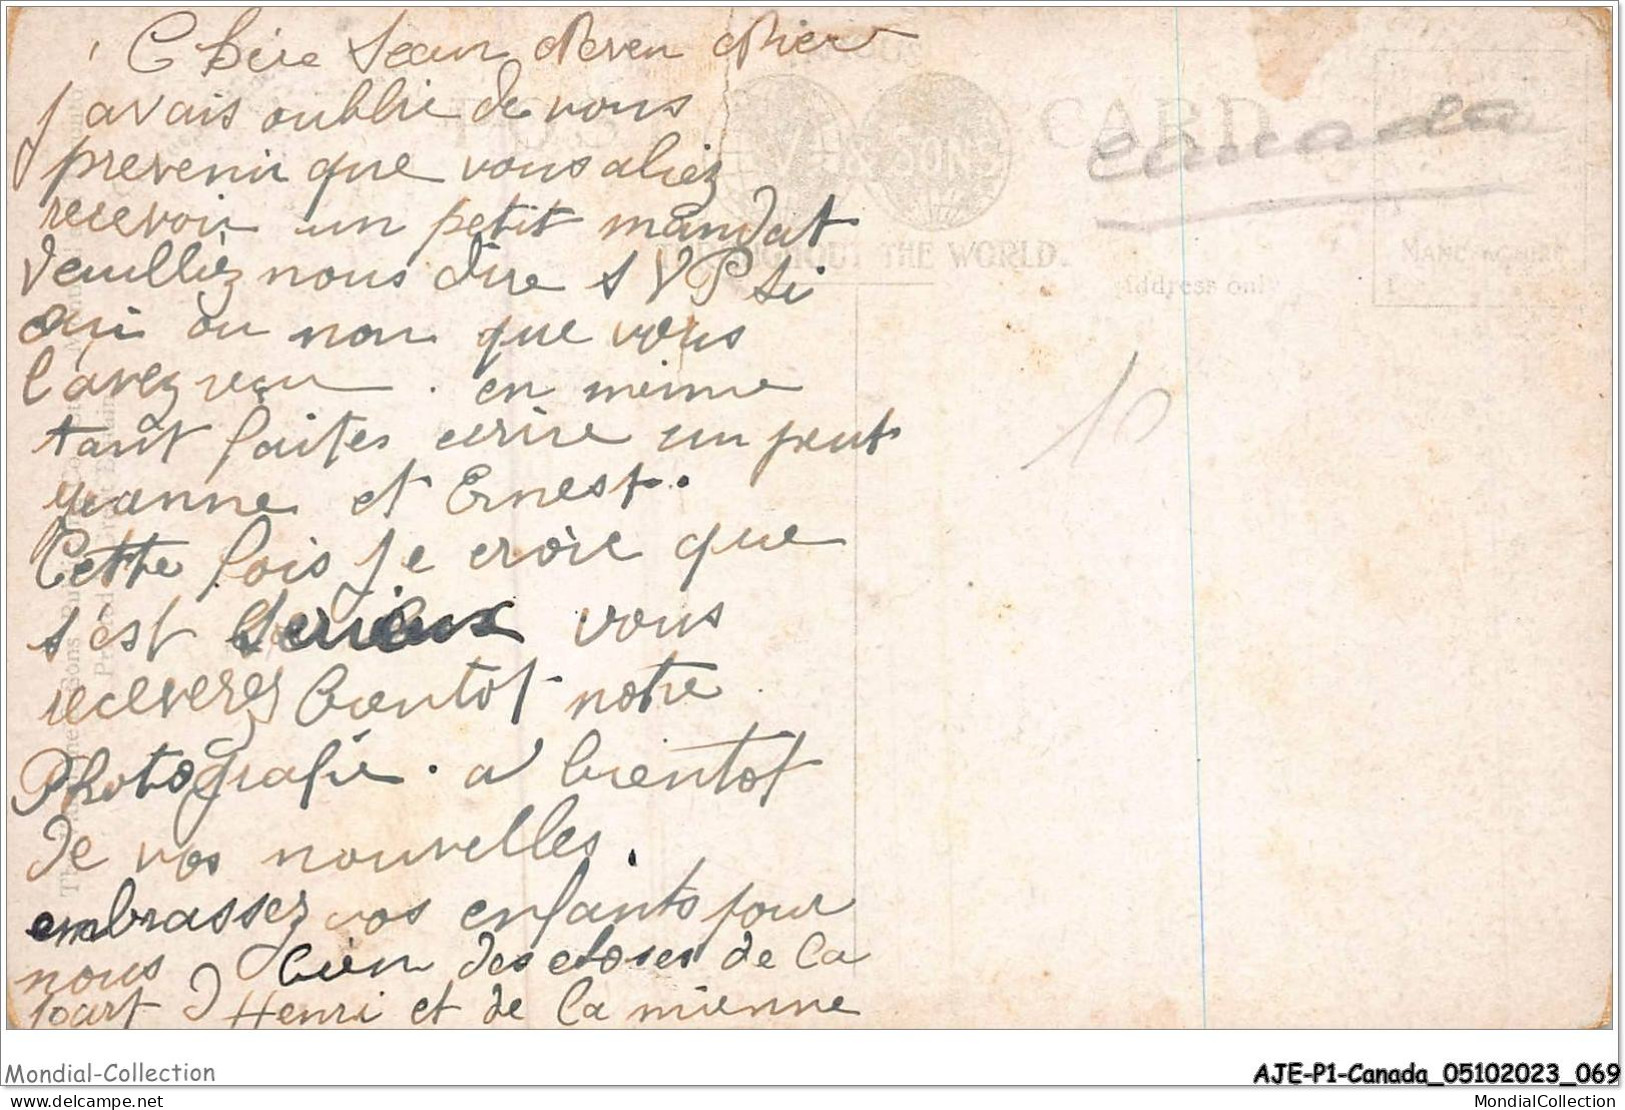 Chère Sœur
j'avais oublie de vous
prevenir que vous aliez
recevoir un petit mandat
Veuilliez nous dire S V P si
oui ou non que vous
l'avez reçu . en même
tant faites ecrire un peut
yeanne et Ernest.
Cette fois je croie que
s'est Serieux vous
receverez bientot notre
Photografie . a bientot
de vos nouvelles.
embrassez vos enfants pour
nous bien des choses de la
part d'Henri et de la mienne
POST CARD
& SONS
THROUGHOUT THE WORLD.
Address only
canada
10
Mondial-Collection
AJE-P1-Canada_05102023_069
MondialCollection